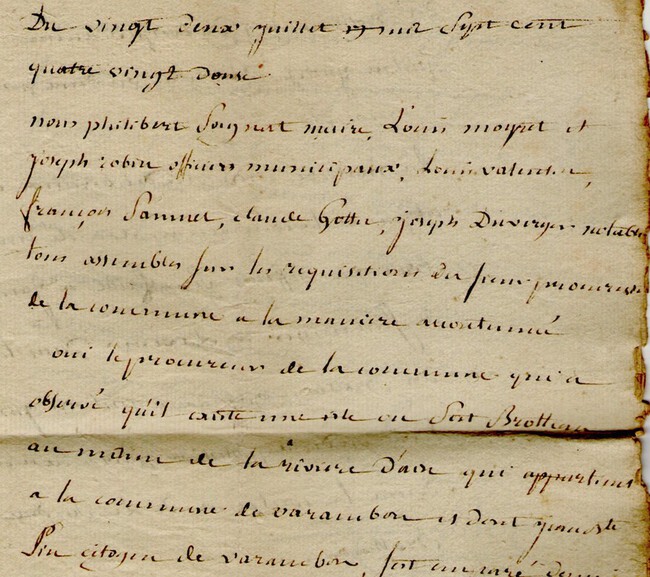 Du vingt deux juillet mil Sept cent
quatre vingt douse
nous philibert maire, Louis moyret et
joseph robin officiers municipaux, Louis valentin,
françois claude Gottu, joseph Duverger notable
tous assembles sur les requisitions du sieur procureur
de la commune a la maniere accoutumée
oui le procureur de la commune qui a
observé qu'il existe une isle ou Brotteau
au milieu de la riviere D'ain qui appartient
a la commune de varambon et dont
citoyen de varambon, s'est emparé